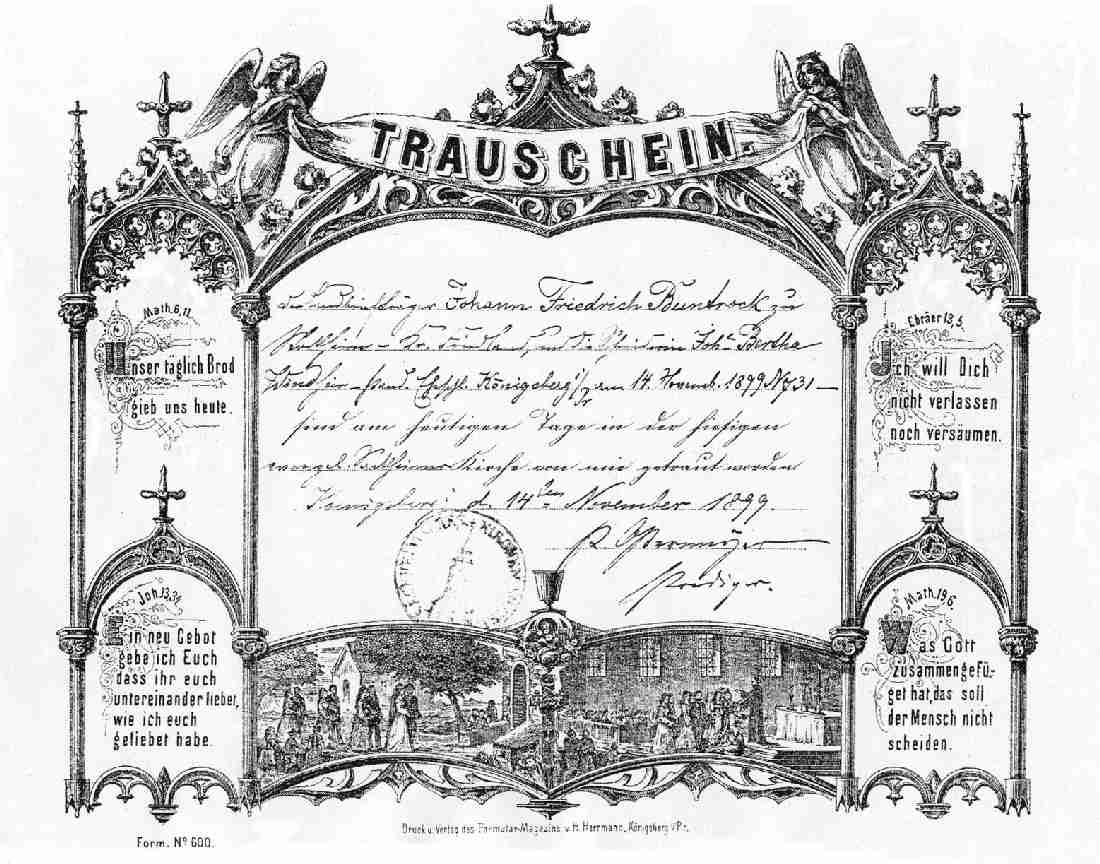 TRAUSCHEIN.
Math.6,11.
Unser täglich Brod
gieb uns heute.
Ebräer 13,5.
Ich will Dich
nicht verlassen
noch versäumen.
Johann Friedrich Buntrock zu
Joh. Bertha
Königsberg i/Pr am 14. Novemb. 1899 No 31
sind am heutigen Tage in der hiesigen
evangel. Kirche von mir getraut worden
Königsberg d. 14ten November 1899.
Prediger.
Joh. 13,34.
Ein neu Gebot
gebe ich Euch
dass ihr euch
untereinander liebet,
wie ich euch
geliebet habe.
Math. 19,6.
Was Gott
zusammengefü-
get hat, das soll
der Mensch nicht
scheiden.
Druck u. Verlag des Formular-Magazins v. H. Herrmann, Königsberg i/Pr.
Form. No 600.